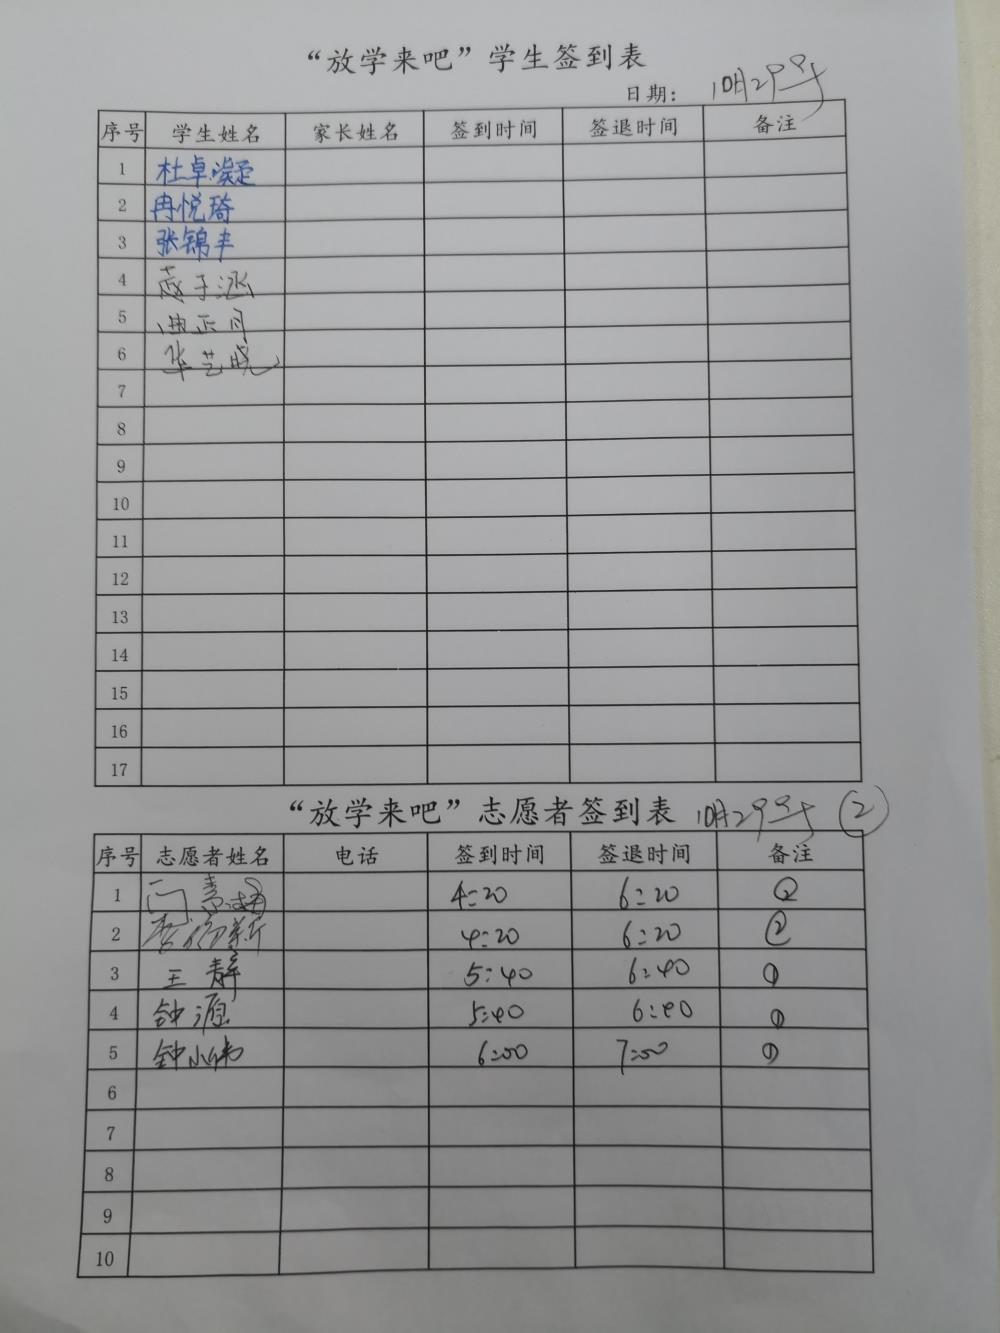 “放学来吧”学生签到表
日期： 10月29号
序号 学生姓名 家长姓名 签到时间 签退时间 备注
1 杜卓凝
2 冉悦琦
3 张锦丰
4 子涵
5 曲正月
6 华艺晓
7
8
9
10
11
12
13
14
15
16
17
“放学来吧”志愿者签到表 10月29号 ②
序号 志愿者姓名 电话 签到时间 签退时间 备注
1 4:20 6:20 ②
2 4:20 6:20 ②
3 王静 5:40 6:40 ①
4 钟源 5:40 6:40 ①
5 钟小伟 6:00 7:00 ①
6
7
8
9
10